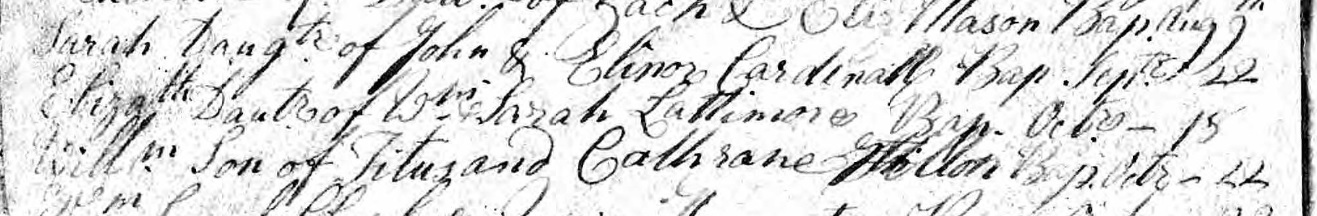 of Zach & Eliz Mason Bap. Aug 9th
Sarah Daugtr of John & Elinor Cardinall Bap. Septr 22
Elizath Dautr of Wm & Sarah Lattimore Bap. Octr - 18
Willm Son of Titus and Cathrane Bap. Octr - 22